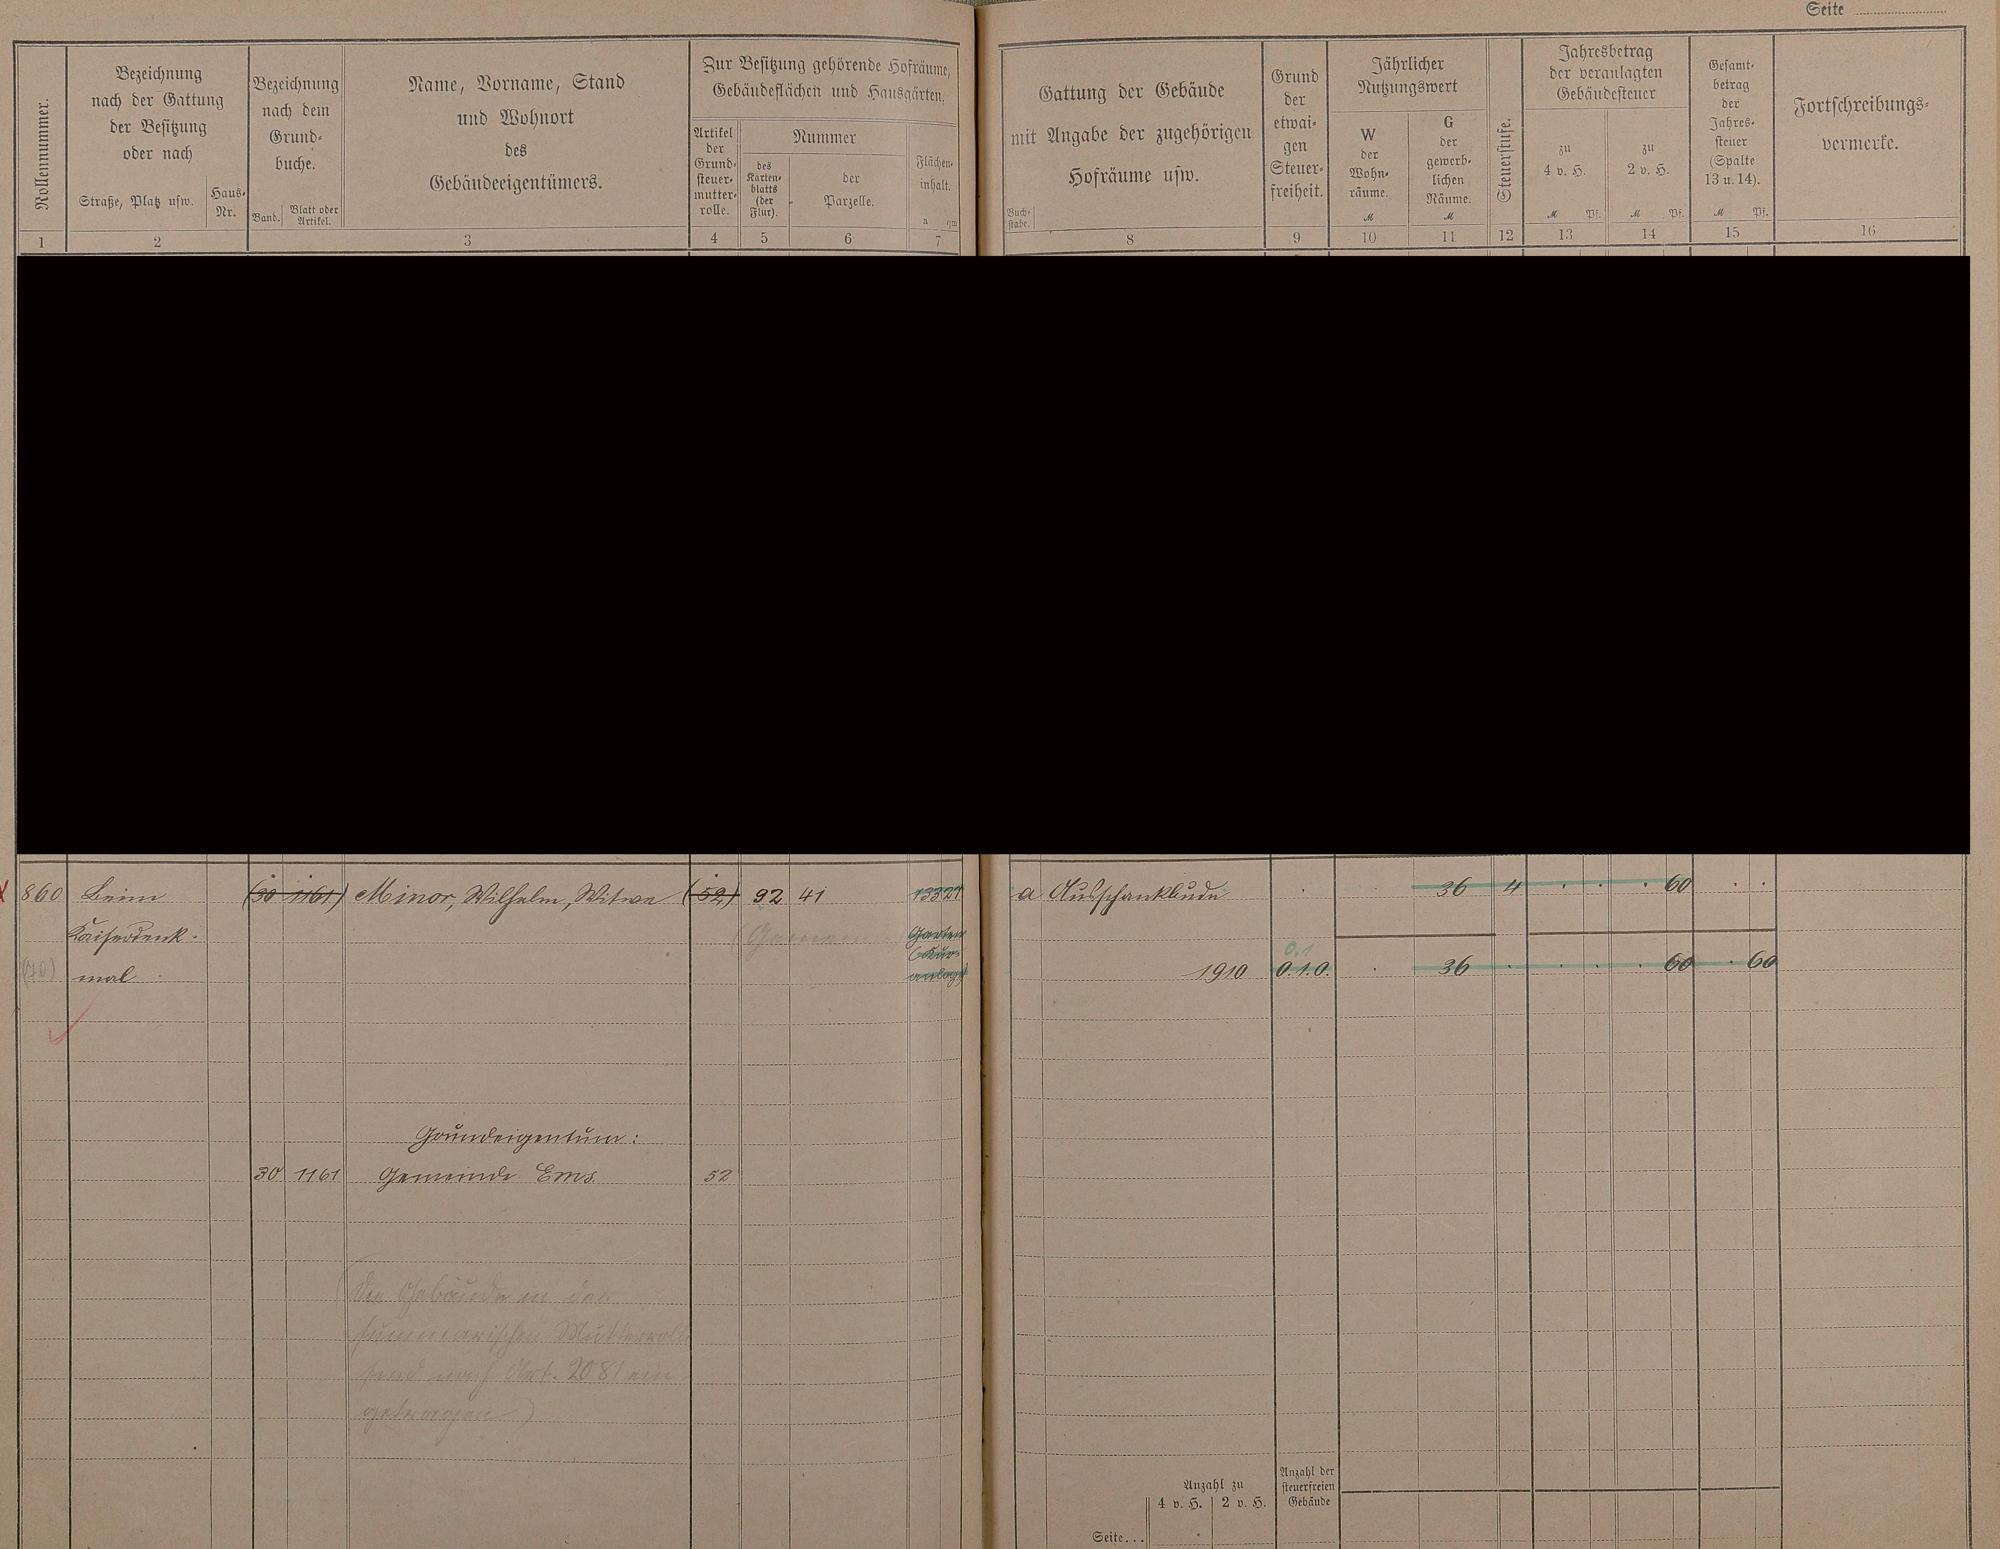 Seite
Rollennummer.
Bezeichnung
nach der Gattung
der Besitzung
oder nach
Straße, Platz usw.
Haus-
Nr.
Bezeichnung
nach dem
Grund-
buche.
Band.
Blatt oder
Artikel.
Name, Vorname, Stand
und Wohnort
des
Gebäudeeigentümers.
Zur Besitzung gehörende Hofräume,
Gebäudeflächen und Hausgärten.
Artikel
der
Grund-
steuer-
mutter-
rolle.
Nummer
des
Karten-
blatts
(der
Flur).
der
Parzelle.
Flächen-
inhalt.
a qm
Buch-
stabe.
Gattung der Gebäude
mit Angabe der zugehörigen
Hofräume usw.
Grund
der
etwai-
gen
Steuer-
freiheit.
Jährlicher
Nutzungswert
W
der
Wohn-
räume.
M
G
der
gewerb-
lichen
Räume.
M
Steuerstufe.
Jahresbetrag
der veranlagten
Gebäudesteuer
zu
4 v. H.
M Pf.
zu
2 v. H.
M Pf.
Gesamt-
betrag
der
Jahres-
steuer
(Spalte
13 u. 14).
M Pf.
Fortschreibungs-
vermerke.
1 2 3 4 5 6 7 8 9 10 11 12 13 14 15 16
860 Beim (30 1161) Minor, Wilhelm, Witwe (52) 92 41 13327 a Ausschankbude 36 4 60
Kaiserdenk- Garten
(Kur-
0.1
(70) mal anlage) 1910 0.1.0. 36 60 60
Grundeigentum:
30 1161 Gemeinde Ems. 52
(Die Gebäude in der
summarischen Mutterrolle
sind nach Art. 2081 ein
getragen)
Anzahl zu
4 v. H. 2 v. H.
Anzahl der
steuerfreien
Gebäude
Seite...